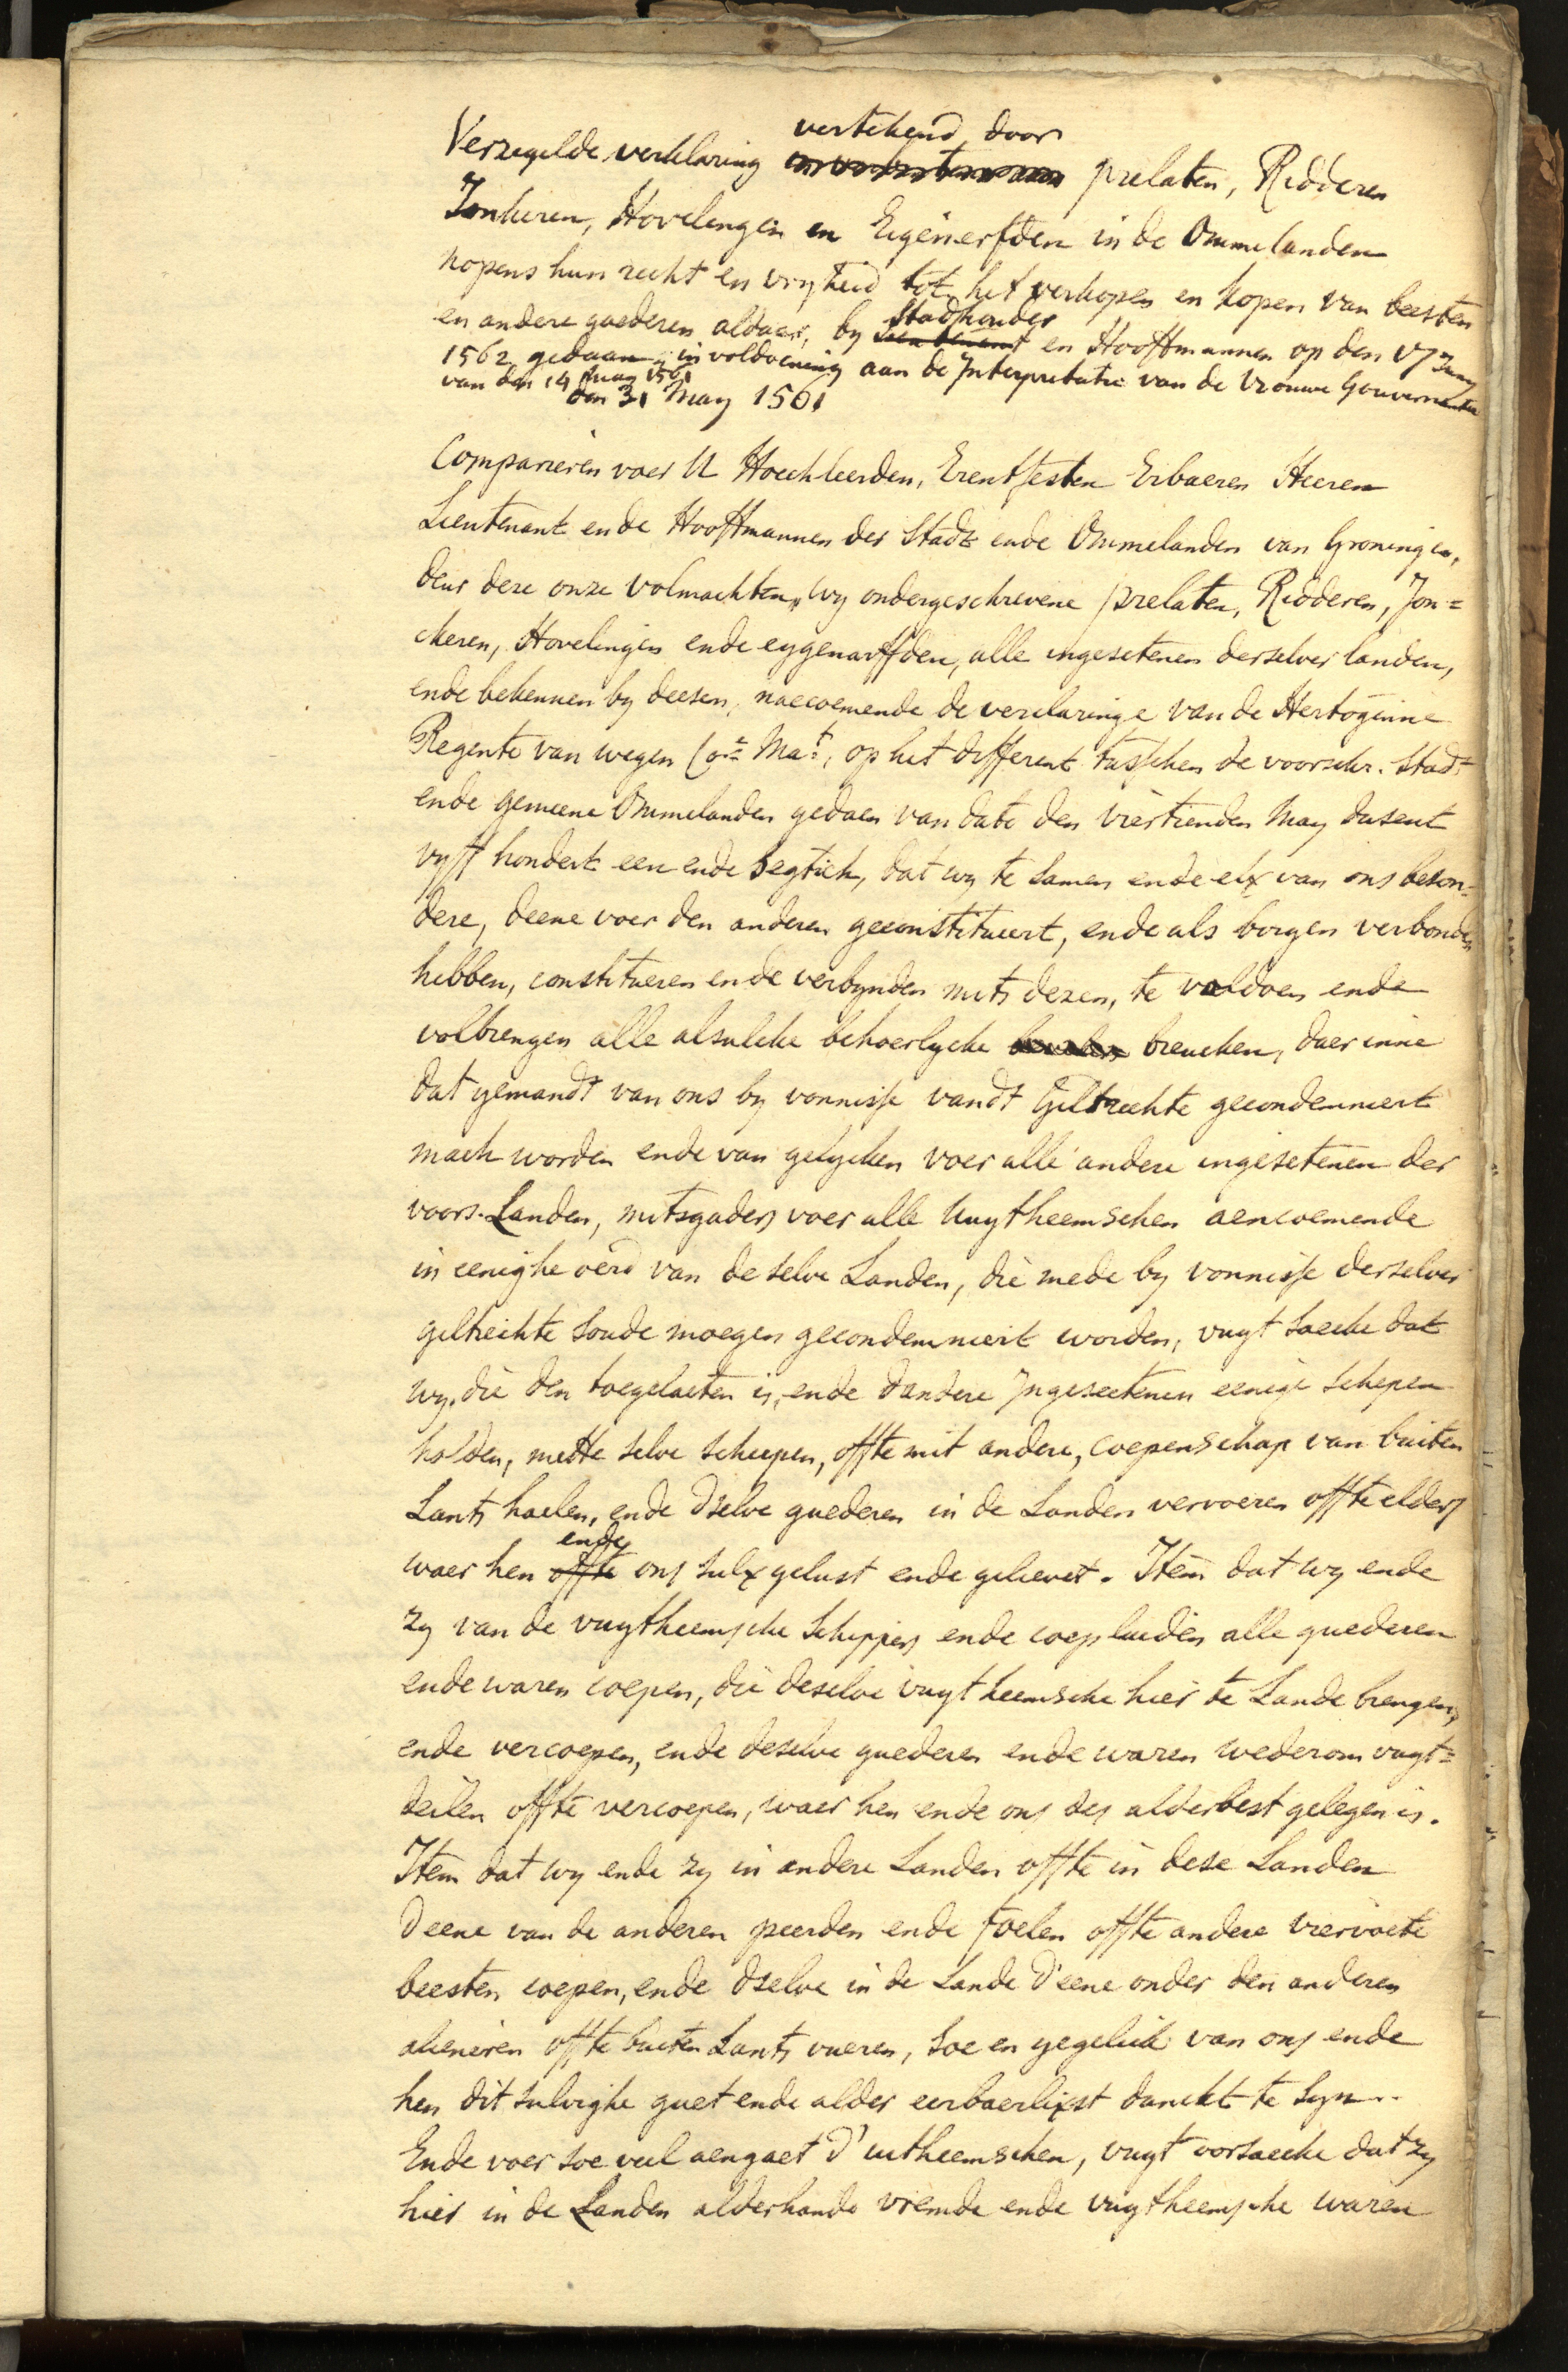 vertekend door
Verzegelde verklaring prelaten, Ridderen
Jonkeren, Hovelingen en Eigenerfden in de Ommelanden
nopens hun recht en vryheid tot het verkopen en kopen van beesten
Stadhouder
en andere goederen aldaar, by Lieutenant en Hooftmannen op den 17 Juny
1562 gedaan, in voldoening aan de Interpretatie van de Vrouwe Gouvernante
van den 14 May 1561
den 31 May 1561
Comparieren voer U Hoechleerden, Erentfesten Erbaeren Heeren
Lieutenant ende Hooftmannen der Stadt ende Ommelanden van Groningen,
deur dere onze volmachten, wy ondergeschrevene prelaten, Ridderen, Jon=
ckeren, Hovelingen ende eygenarffden, alle ingesetenen derselver landen,
ende bekennen by deesen, naecoemende de verclaringe van de Hertoginne
Regente van wegen Co.e Ma.t, op het different tusschen de voorschr. Stadt
ende gemeene Ommelanden gedaen van dato den viertienden May dusent
vyff hondert een ende segtich, dat wy te samen ende elx van ons beson=
dere, deene voer den anderen geconstitueert, ende als borgen verbonden
hebben, constitueren ende verbynden mits dezen, te voldoen ende
volbrengen alle alsulcke behoerlycke breucken, daer inne
dat yemandt van ons by vonnisse vandt Giltrechte gecondemneert
mach worden ende van gelycken voer alle andere ingesetenen der
voors. Landen, mitsgaders voer alle Uuytheemschen aencoemende
in eenighe oerd van de selve Landen, die mede by vonnisse derselver
giltrechte soude moegen gecondemneert worden, vuyt saecke dat
wy, die den toegelaeten is, ende dandere Ingeseetenen eenige schepen
holden, mette selve scheepen, offte mit andere, coepenschap van buiten
Lants haelen, ende dselve guederen in de Landen vervoeren offte elders
ende
waer hen offte ons sulx gelust ende gelievet. Item dat wy ende
zy van de vuytheemsche Schippers ende coepluiden alle guederen
ende waren coepen, die deselve vuytheemsche hier te Lande brengen,
ende vercoepen, ende deselve guederen ende waren wederom vuyt=
deilen offte vercoepen, waer hen ende ons des alderbest gelegen is.
Item dat wy ende zy in andere Landen offte in dese Landen
Deene van de anderen peerden ende foelen offte andere viervoete
beesten coepen, ende dselve in de Lande d'eene onder den anderen
alieneren offte buiten Lants vueren, soe en yegelick van ons ende
hen dit sulvighe guet ende alder eerbaerlixst danckt te syn..
Ende voer soe veel aengaet d'uutheemschen, vuyt oorsaecke dat zy
hier in de Landen alderhande vremde ende vuytheemsche waren